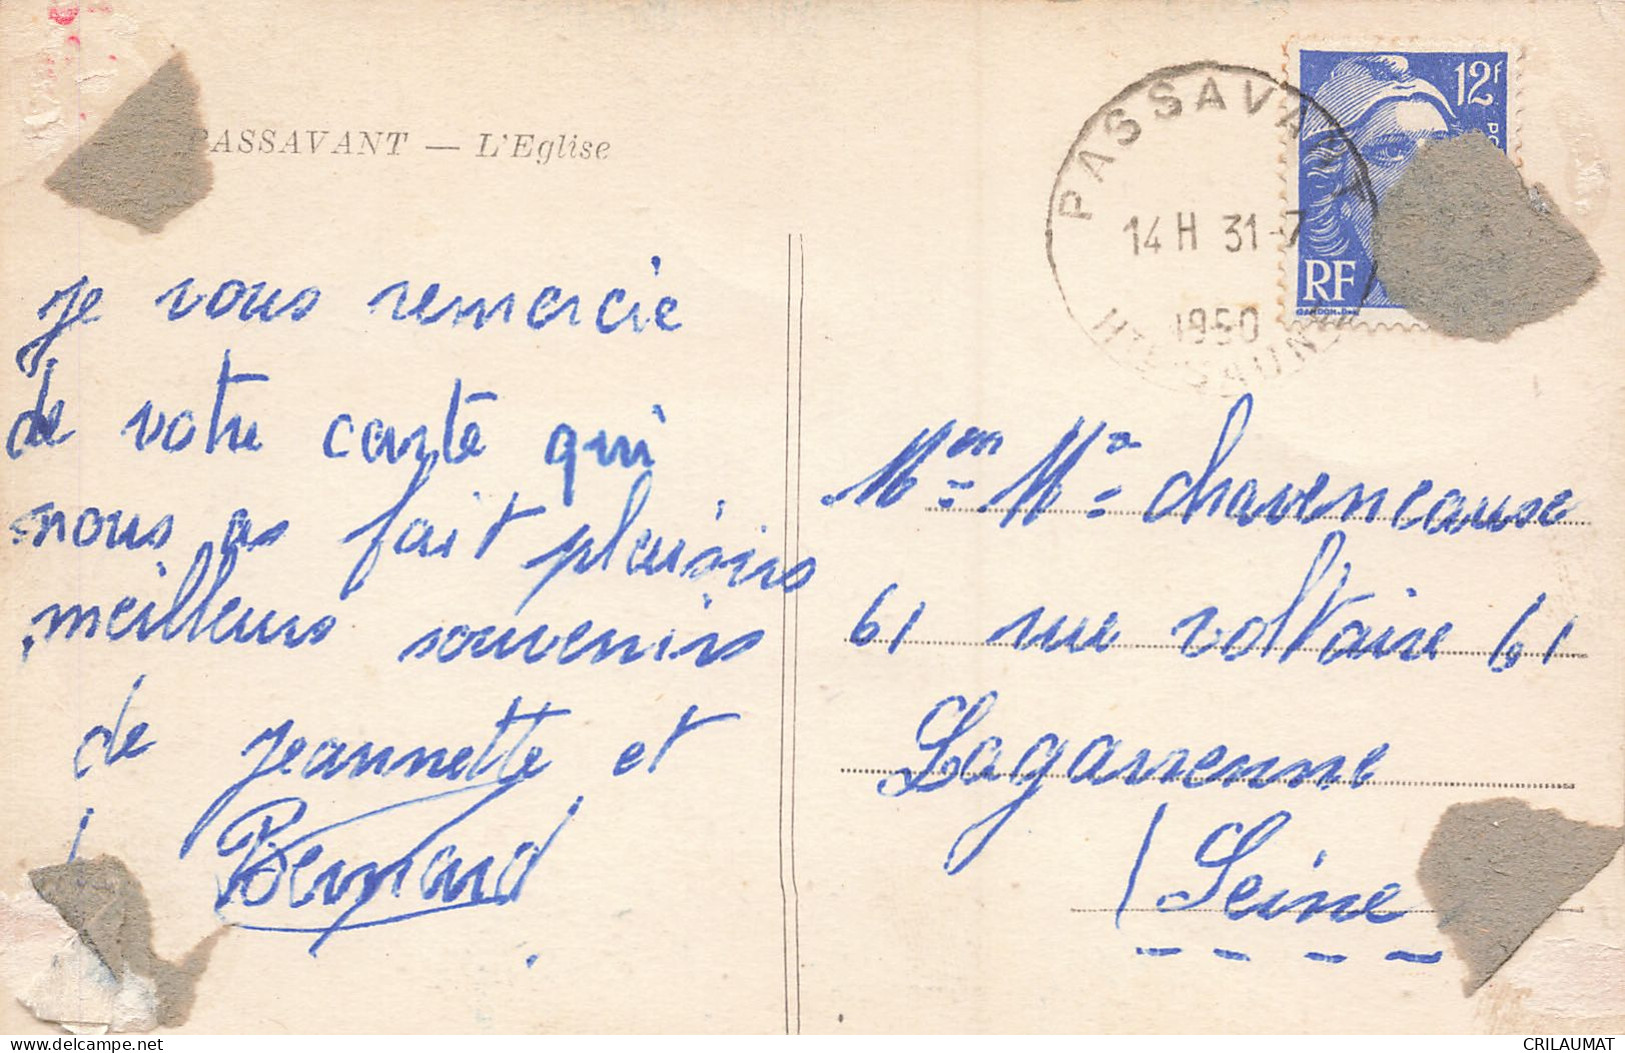 PASSAVANT — L'Eglise
je vous remercie
de votre carte qui
nous as fait plaisirs
meilleurs souvenirs
de jeannette et
Bernard
PASSAVANT
14 H 31-7
1950
HTE SAONE
12f
RF
GANDON
Mon Ma chaveneause
61 rue voltaire 61
Lagarrenne
(Seine
delcampe.net
CRILAUMAT